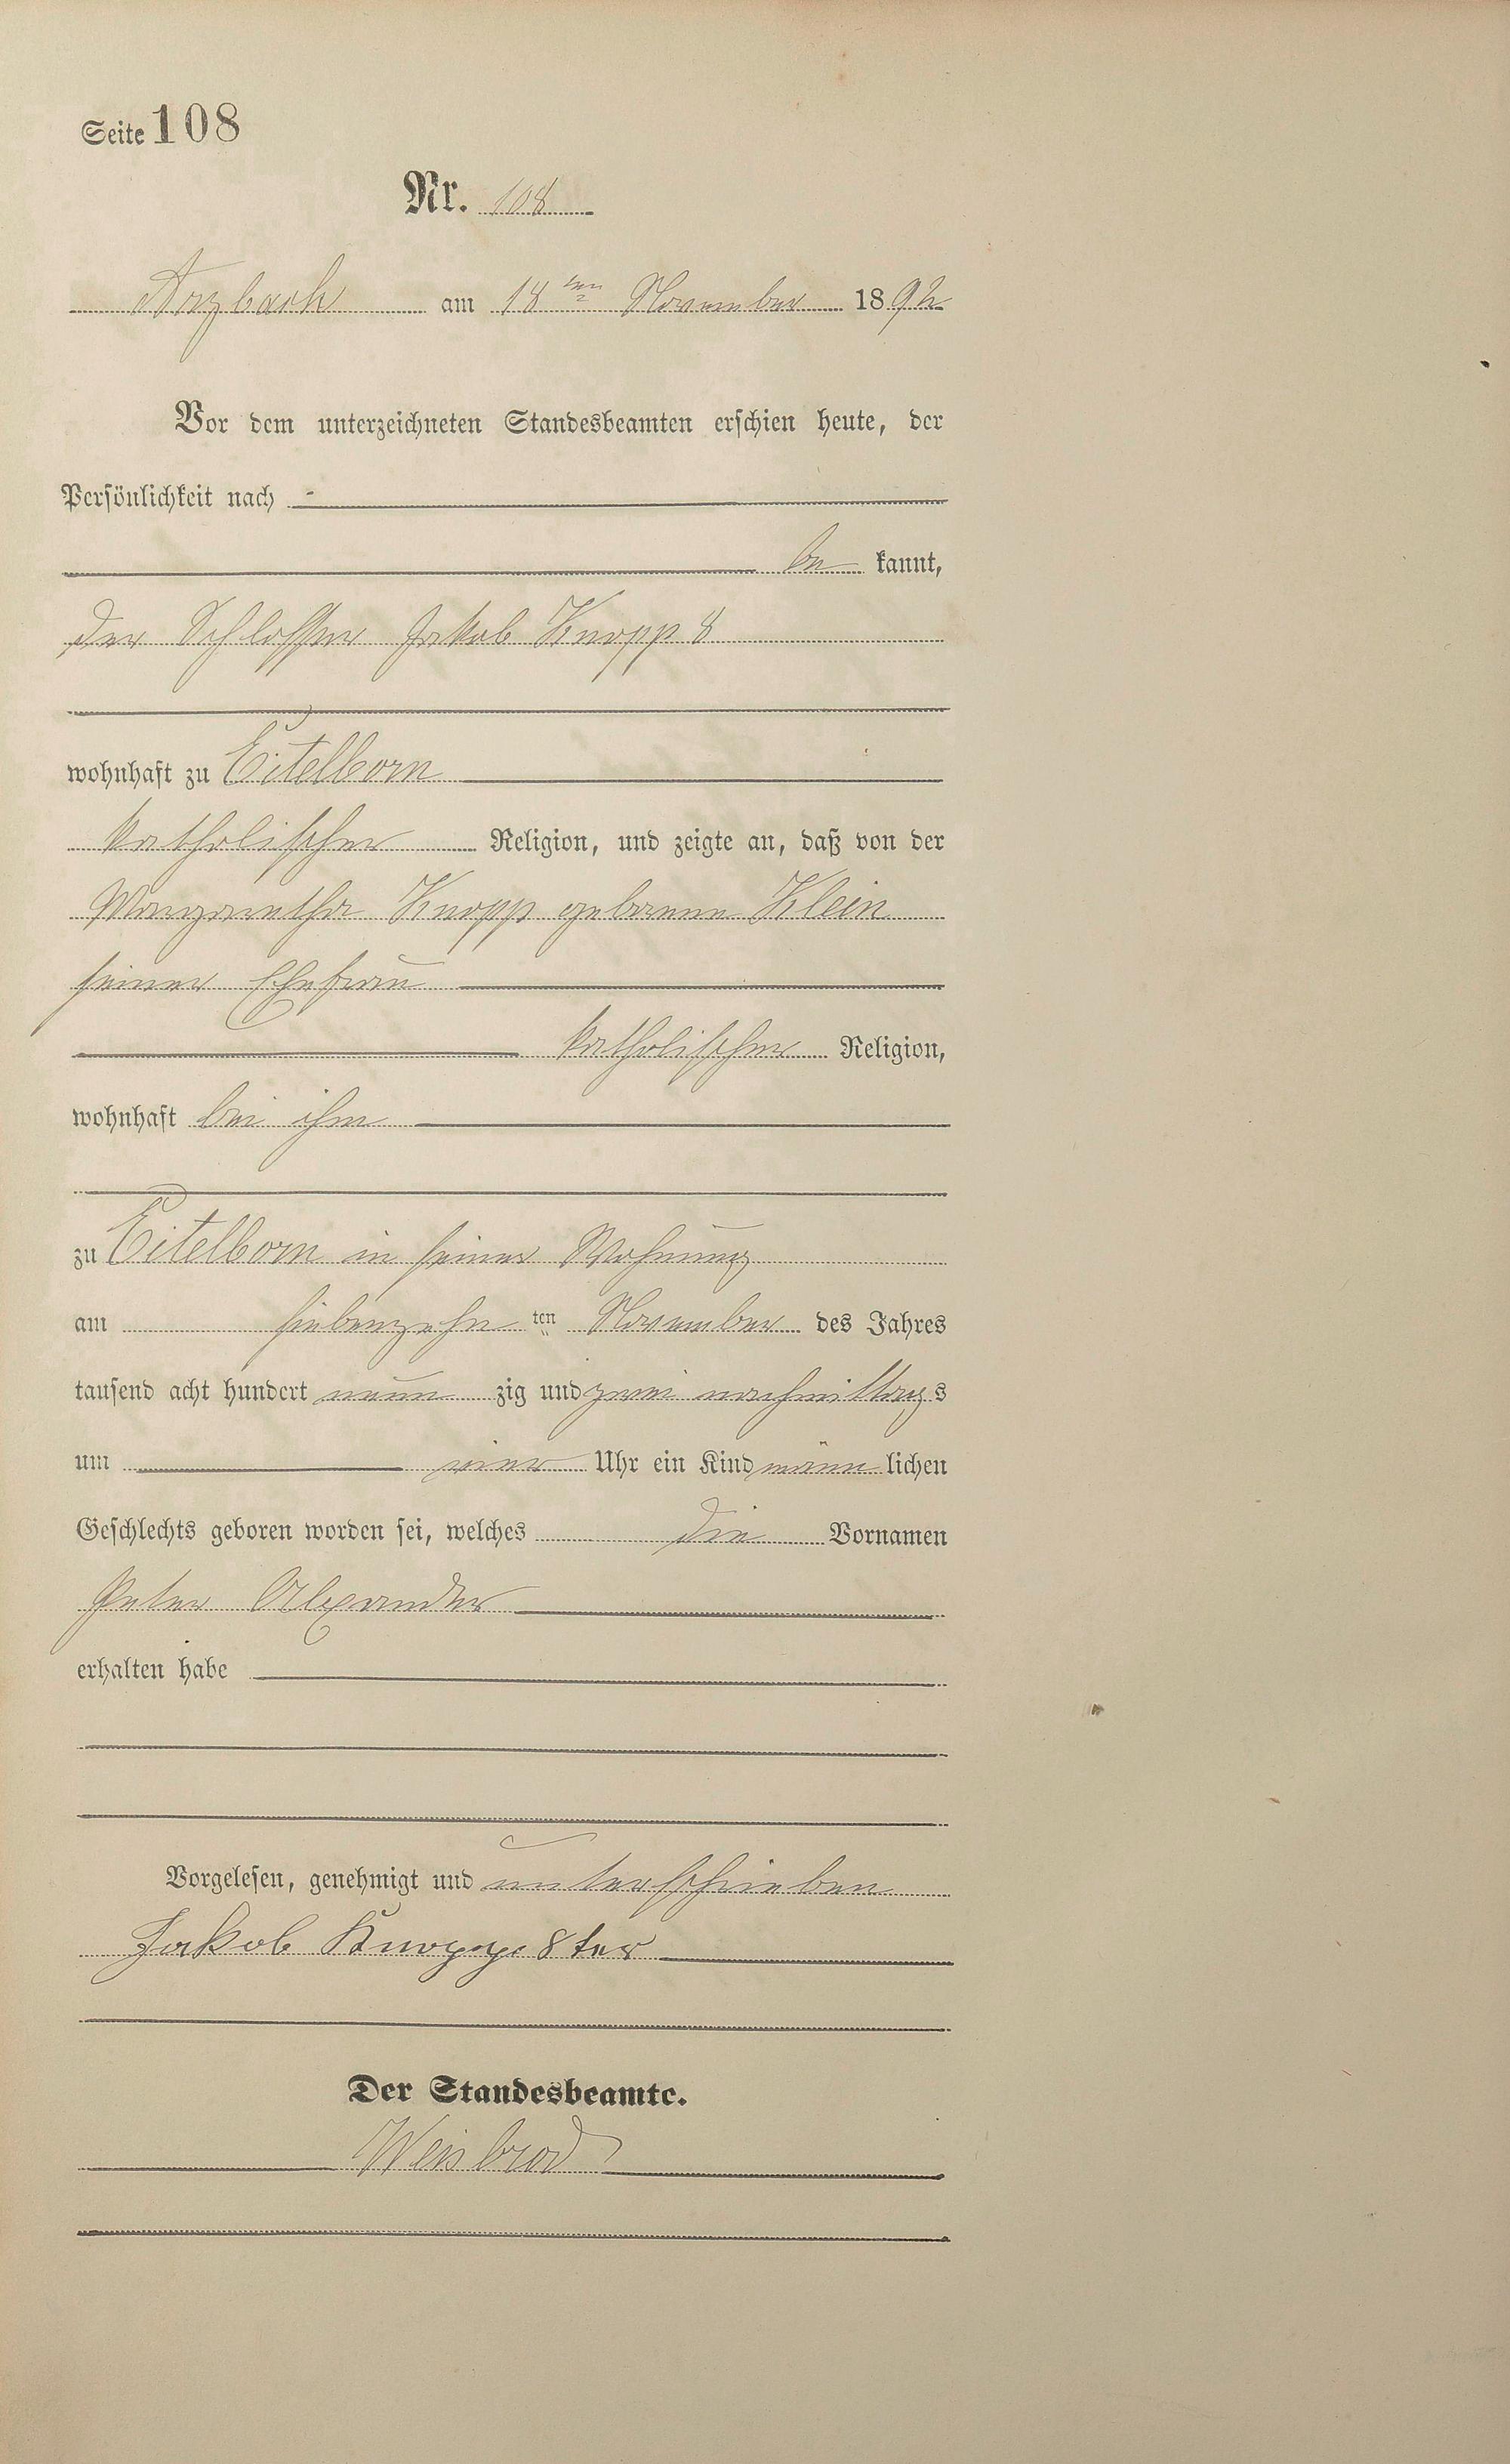 Seite 108
Nr. 108
Arzbach am 18ten November 1892
Vor dem unterzeichneten Standesbeamten erschien heute, der
Persönlichkeit nach
be kannt,
der Schlosser Jakob Knopp 8
wohnhaft zu Eitelborn
katholischer Religion, und zeigte an, daß von der
Margaretha Knopp geborene Klein
seiner Ehefrau
katholischer Religion,
wohnhaft bei ihm
zu Eitelborn in seiner Wohnung
am siebenzehn ten November des Jahres
tausend acht hundert neun zig und zwei nachmittags
um vier Uhr ein Kind männ lichen
Geschlechts geboren worden sei, welches die Vornamen
Peter Alexander
erhalten habe
Vorgelesen, genehmigt und unterschrieben
Jakob Knopp 8ter
Der Standesbeamte.
Weisbrod